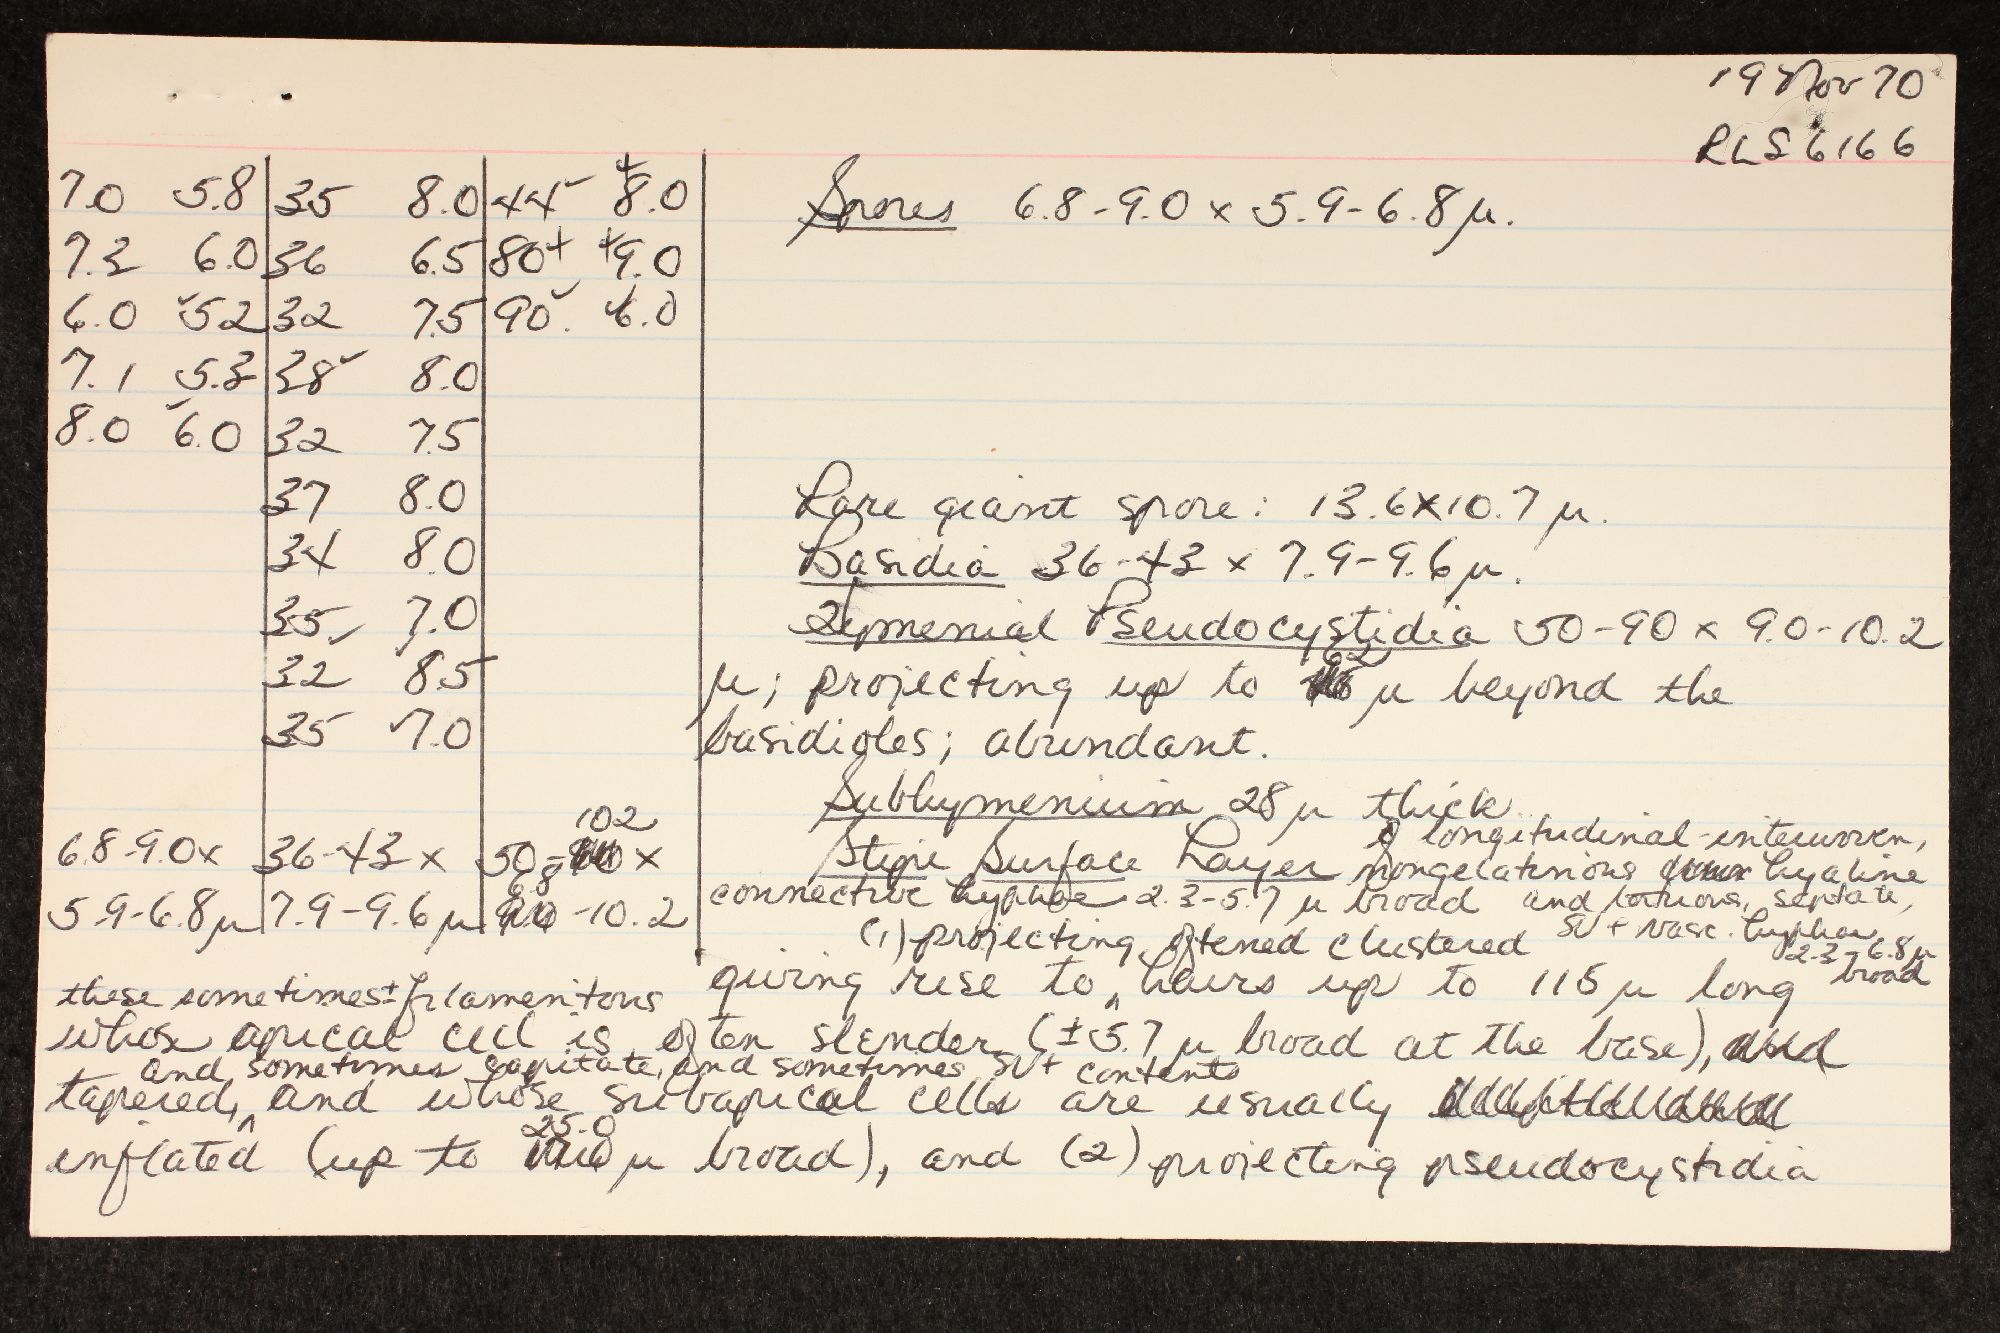 19 Nov 70
RLS 6166
7.0 5.8 35 8.0 44 8.0
7.3 6.0 36 6.5 80+ +9.0
6.0 5.2 32 7.5 90. 6.0
7.1 5.3 38 8.0
8.0 6.0 32 7.5
37 8.0
34 8.0
35 7.0
32 8.5
35 7.0
102
6.8-9.0 x 36-43 x 50- x
5.9-6.8 µ 7.9-9.6 µ -10.2
Spores 6.8-9.0 x 5.9-6.8 µ.
Rare giant spore: 13.6 x 10.7 µ.
Basidia 36-43 x 7.9-9.6 µ.
Hymenial Pseudocystidia 50-90 x 9.0-10.2
62
µ; projecting up to µ beyond the
basidioles; abundant.
Subhymenium 28 µ thick.
of longitudinal-interwoven,
Stipe Surface Layer nongelatinous hyaline
connective hyphae 2.3-5.7 µ broad and tortuous, septate,
SV+ vasc. hyphae
2.3-6.8 µ
broad
(1) projecting, oftened clustered
giving rise to ^ hairs up to 115 µ long
these sometimes ± filamentous
whose apical cell is often slender (± 5.7 µ broad at the base),
and sometimes capitate, and sometimes SV+ contents
tapered, ^ and whose subapical cells are usually
25.0
inflated (up to µ broad), and (2) projecting pseudocystidia